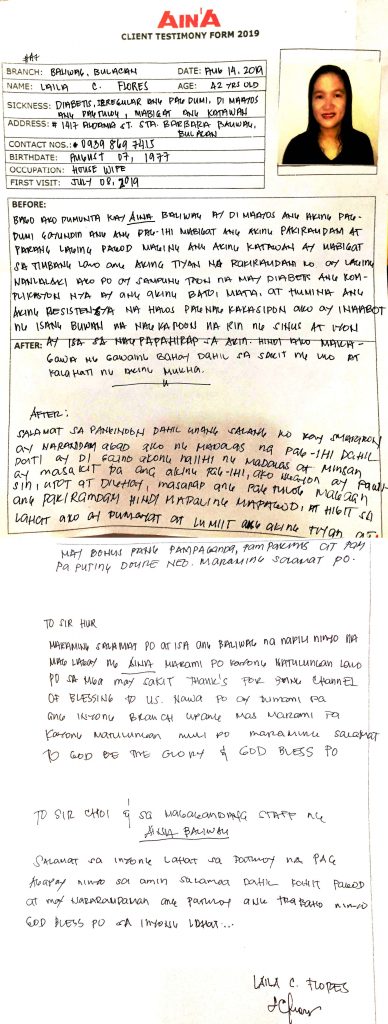 AINA
CLIENT TESTIMONY FORM 2019
BRANCH: BALIWAG, BULACAN DATE: AUG 14, 2019
NAME: LAILA C. FLORES AGE: 42 YRS OLD
SICKNESS: DIABETIS, IRREGULAR ANG PAG DUMI, DI MAAYOS
ANG PAGTULOG, MABIGAT ANG KATAWAN
ADDRESS: # 1417 ST. STA. BARBARA BALIWAG,
BULACAN
CONTACT NOS.: # 0939 869 7415
BIRTHDATE: AUGUST 07, 1977
OCCUPATION: HOUSE WIFE
FIRST VISIT: JULY 08, 2019
BEFORE:
BAGO AKO PUMUNTA KAY AINA BALIWAG AY DI MAAYOS ANG AKING PAG-
DUMI GAYUNDIN ANG ANG PAG-IHI MABIGAT ANG AKING PAKIRAMDAM AT
PARANG LAGING PAGOD MAGING ANG AKING KATAWAN AY MABIGAT
SA TIMBANG LALO ANG AKING TIYAN NA PAKIRAMDAM KO AY LAGING
NANLALAKI AKO PO AY SAMPUNG TAON NA MAY DIABETIS ANG KOM-
PLIKASYON NYA AY ANG AKING BATO, MATA, AT HUMINA ANG
AKING RESISTENSYA NA HALOS PAG NAG KAKASIPON AKO AY INAABOT
NG ISANG BUWAN NA NAGKAROON NA RIN NG SINUS AT IYON
AFTER: AY ISA SA NAG PAPAHIRAP SA AKIN. HINDI AKO MAKA-
GAWA NG GAWAING BAHAY DAHIL SA SAKIT NG ULO AT
KALAHATI NG AKING MUKHA.
AFTER:
SALAMAT SA DAHIL UNANG SALANG KO KAY
AY NARAMDAM AGAD AKO NG MADALAS NA PAG-IHI DAHIL
DATI AY DI GAANO AKONG NAIIHI NG MADALAS AT MINSAN
AY MASAKIT PA ANG AKING PAG-IHI, AKO NGAYON AY
UTOT AT DIGHAY, MASARAP ANG PAG TULOG MAGAAN
ANG PAKIRAMDAM HINDI MADALING MAPAGOD, AT HIGIT SA
LAHAT AKO AY PUMAYAT AT LUMIIT ANG AKING TIYAN AT
MAY BONUS PANG PAMPAGANDA, PAMPAKINIS AT PAM
PA PUTING MARAMING SALAMAT PO.
TO SIR HUR
MARAMING SALAMAT PO AT ISA ANG BALIWAG NA NAPILI NINYO NA
MAG LAGAY NG AINA MARAMI PO KAYONG NATULUNGAN LALO
PO SA MGA MAY SAKIT THANK'S FOR BEING CHANNEL
OF BLESSING TO US. NAWA PO AY DUMAMI PA
ANG INYONG BRANCH UPANG MAS MARAMI PA
KAYONG MATULUNGAN MULI PO MARAMING SALAMAT
TO GOD BE THE GLORY & GOD BLESS PO
TO SIR CHOI & SA MAGAGANDANG STAFF NG
AINA BALIWAG
SALAMAT SA INYONG LAHAT SA PATULOY NA PAG
AGAPAY NINYO SA AMIN SALAMAT DAHIL KAHIT PAGOD
AT MAY NARARAMDAMAN ANG PATULOY ANG TRABAHO NINYO
GOD BLESS PO SA INYONG LAHAT...
LAILA C. FLORES